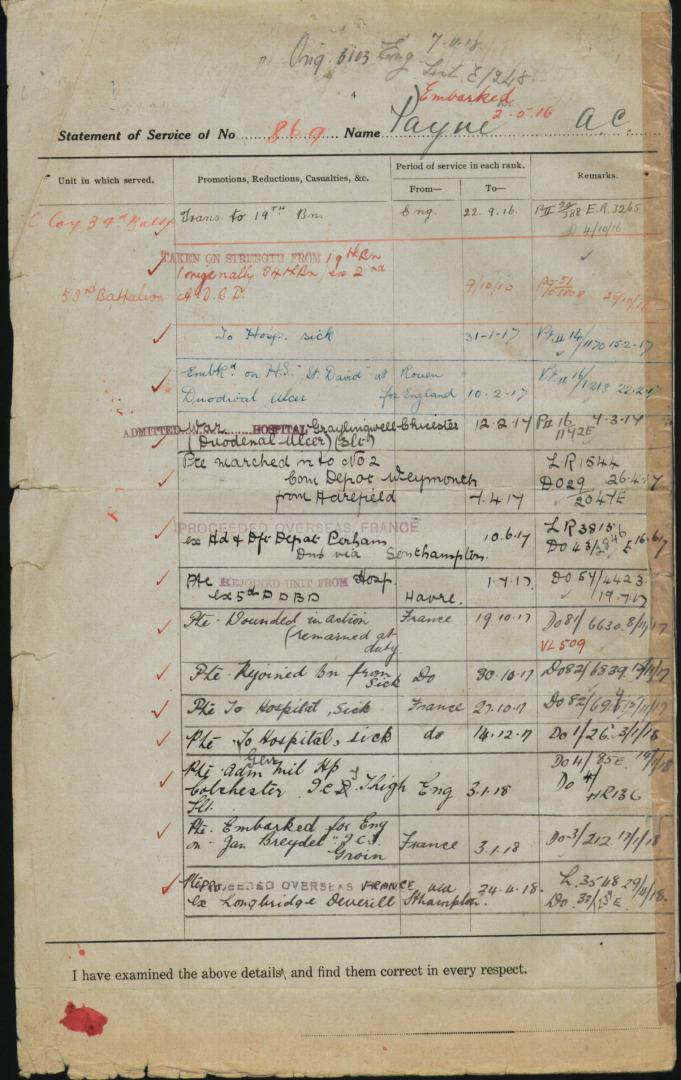 Orig. B103 Eng 7-11-18
List E/248
Embarked
2-5-16
Statement of Service of No. 869 Name Payne A.C.
Unit in which served.
Promotions, Reductions, Casualties, &c.
Period of service in each rank.
From—
To—
Remarks.
C Coy 34th Battn
Trans. to 19TH Bn.
Eng.
22.9.16.
E.R. 3265
4/10/16
TAKEN ON STRENGTH FROM 19th Bn
(originally 34th Bn) ex 2nd
53rd Battalion
A.D.B.D.
To Hosp. sick
31-1-17
Pt II 14/1170 15-2-17
Embkd on H.S. "St. David" at Rouen
Duodinal Ulcer for England
10.2.17
Pt II 16/1218 22.2.17
ADMITTED War HOSPITAL Graylingwell Chicester
(Duodenal Ulcer) (Slt)
12.2.17
Pt II 16
1142E
Pte marched in to No 2
Com Depot Weymouth
from Harefield
7.4.17
L.R 1544
DO 29 26.4.17
2047E
PROCEEDED OVERSEAS, FRANCE
ex Hd & Dft Depot Perham
Dns via Southampton.
10.6.17
L R 3815
Do 43 E 16.6.17
Pte REJOINED UNIT FROM Hosp.
ex 5th D D B D
Havre.
1.7.17.
DO 54/4423
19.7.17
Pte. Wounded in action
(remained at
duty
France
19.10.17
Do 81/6630. 8/11/17
VL 509
Pte. Rejoined Bn from
Sick
Do
30.10.17
Do 82/6839
Pte To Hospital, Sick
France
27.10.17
Do 82
Pte To Hospital, sick
do
14.12.17
Do 1/26. 3/1/18
Pte Adm Mil Hp
Colchester I.C.T. Thigh
Slt.
Eng
3.1.18
Do 4/95E
Do 4/
HR136
Pte. Embarked for Eng
on "Jan Breydel" I.C.T.
Groin
France
3.1.18
Do 3/212. 17/1/18
Pte PROCEEDED OVERSEAS FRANCE via
ex Longbridge Deverill Sthampton.
24.4.18.
L. 3548
Do. 33
I have examined the above details, and find them correct in every respect.